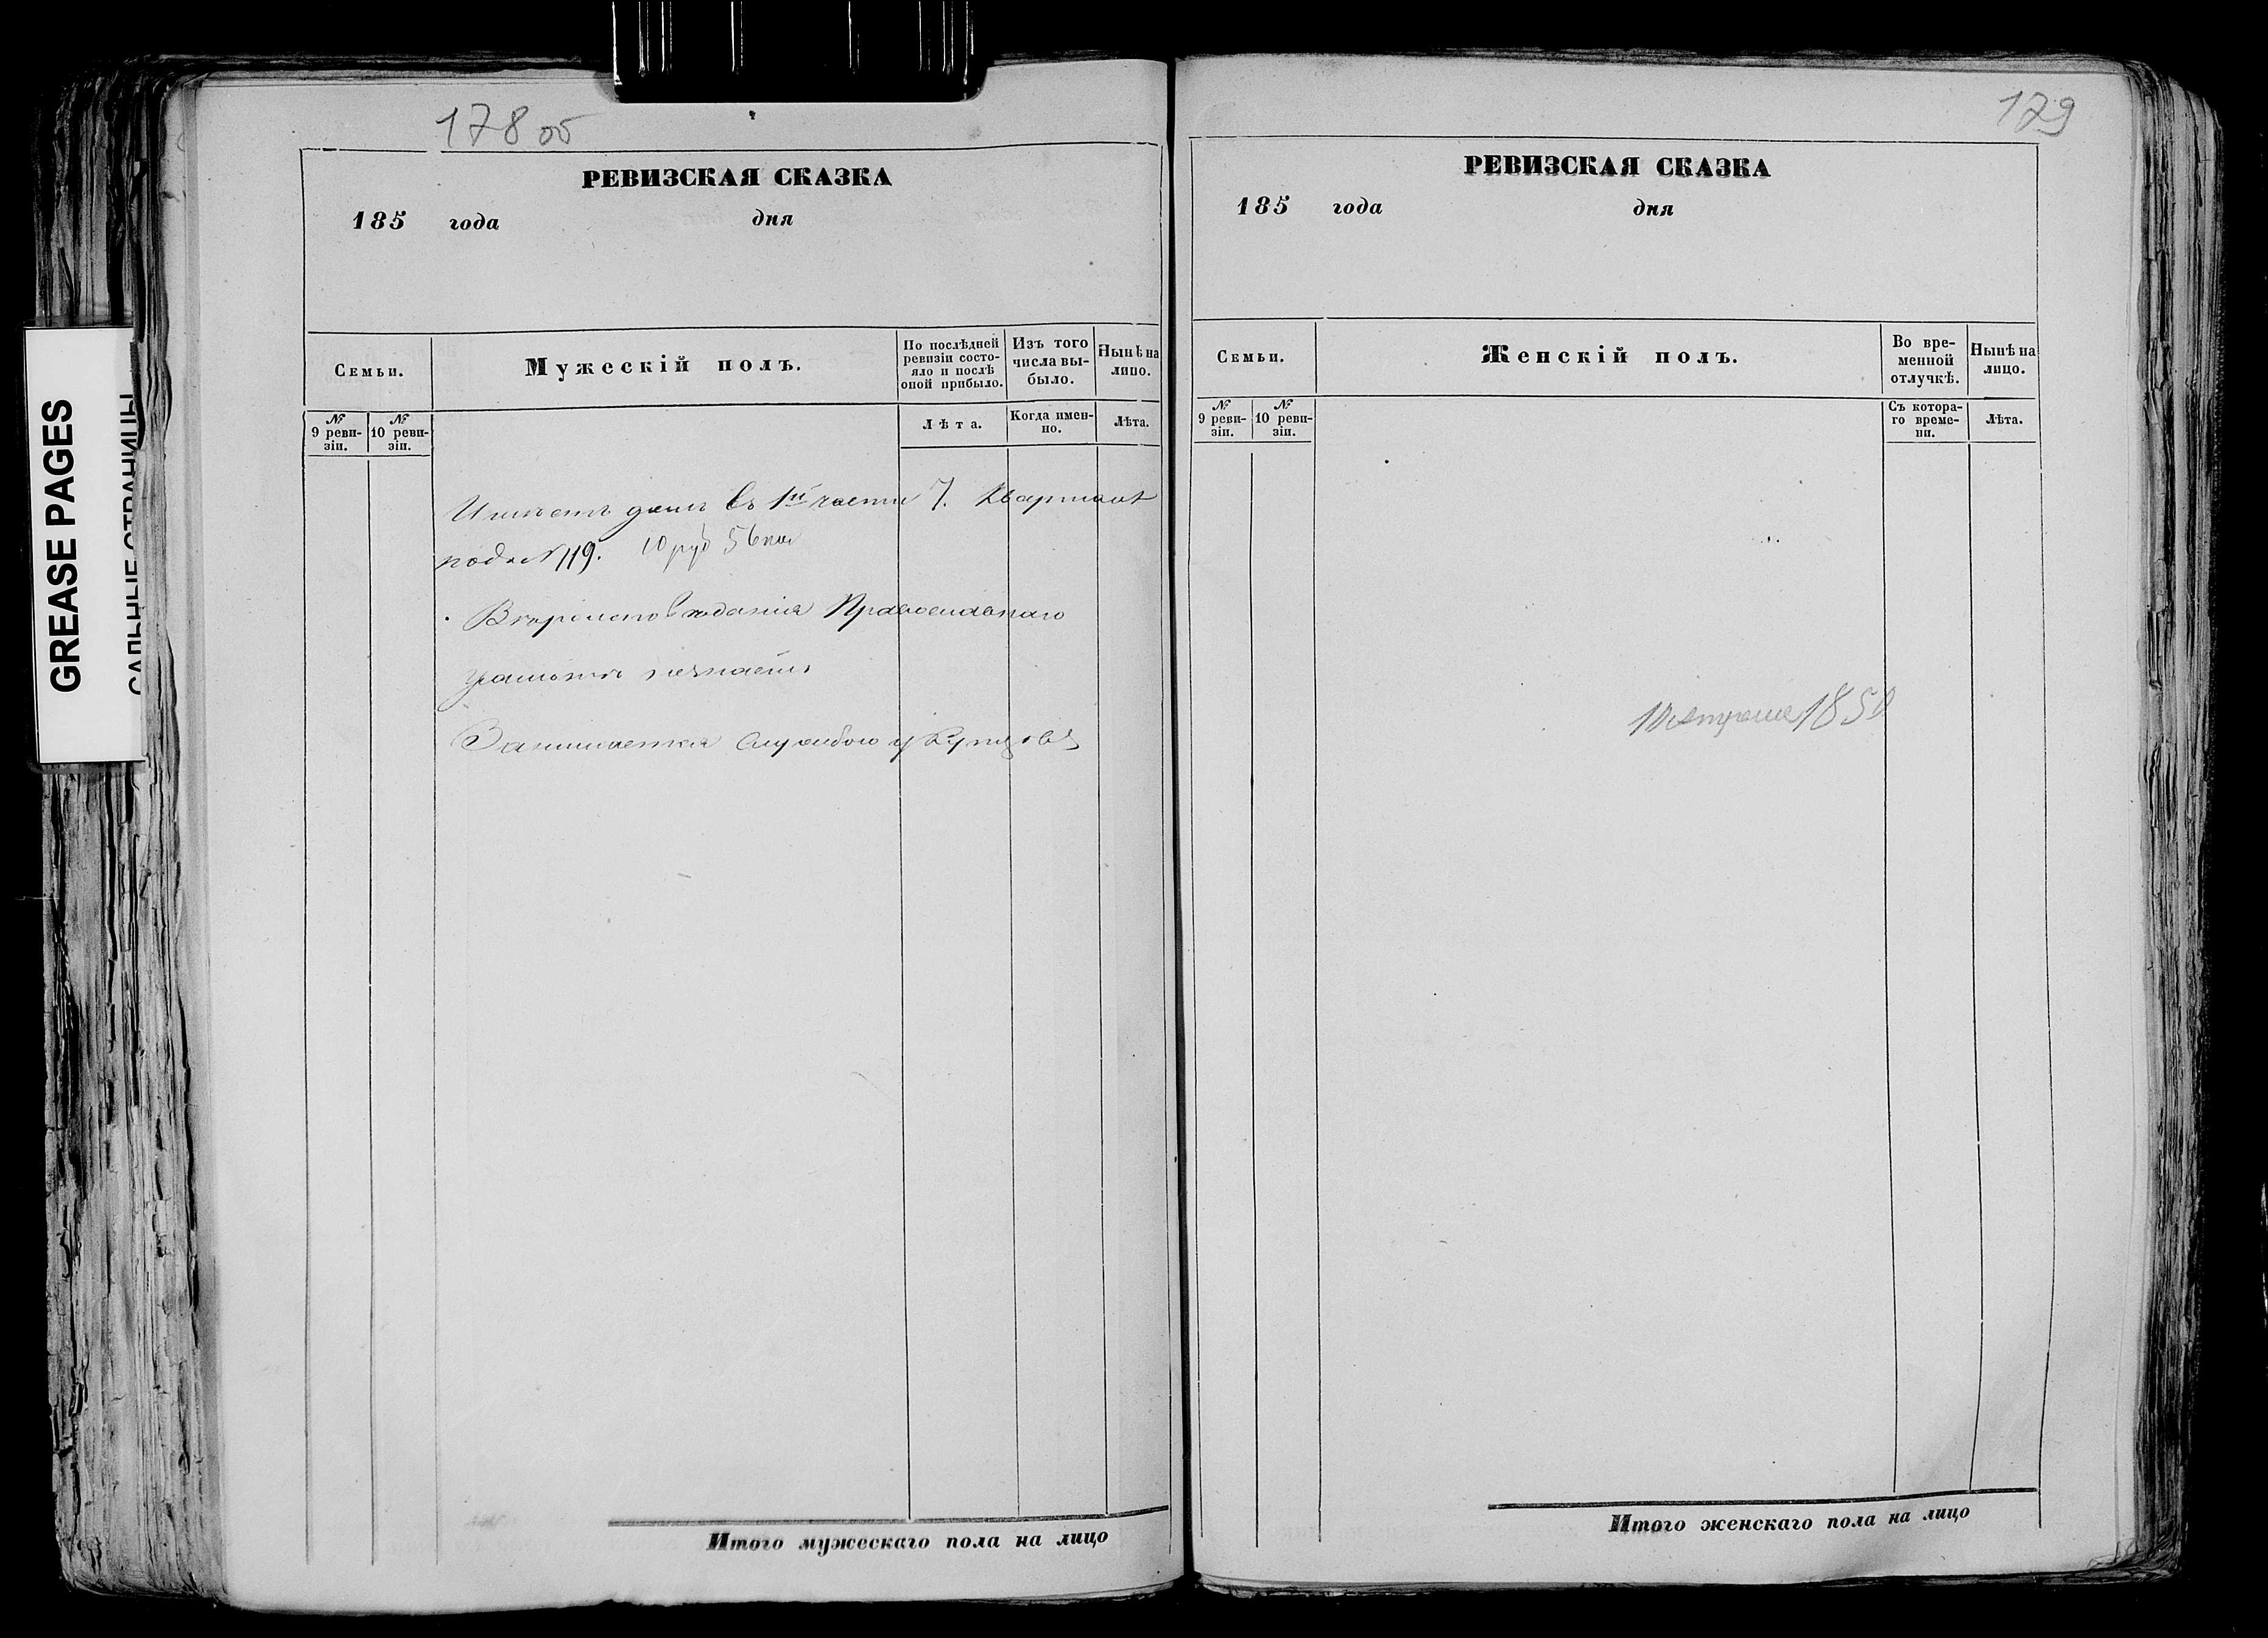 178 об
РЕВИЗСКАЯ СКАЗКА
185 года дня
Семьи.
Мужескій полъ.
По послѣдней ревизіи состо-
яло и послѣ оной прибыло.
Изъ того числа вы-
было.
Нынѣ на лицо.
№ 9 реви-
зіи.
№ 10 реви-
зіи.
Лѣта.
Когда имен-
но.
Лѣта.
Имѣетъ домъ въ 1й части 7. Квартала
подъ № 119. 10 руб 56 коп
Вѣроисповѣданія Православнаго
грамотѣ незнаетъ
Занимается службою у Купцовъ
Итого мужескаго пола на лицо
179
РЕВИЗСКАЯ СКАЗКА
185 года дня
Семьи.
Женскій полъ.
Во вре-
менной
отлучкѣ.
Нынѣ на
лицо.
№ 9 реви-
зіи.
№ 10 реви-
зіи.
Съ котора-
го време-
ни.
Лѣта.
185
Итого женскаго пола на лицо
GREASE PAGES
САЛЬНЫЕ СТРАНИЦЫ